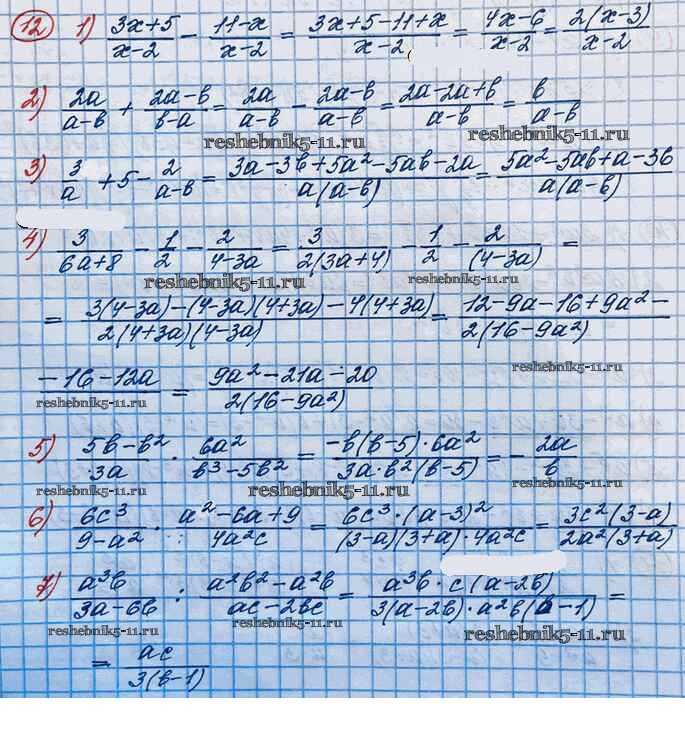 12 1) (3x+5)/(x-2) - (11-x)/(x-2) = (3x+5-11+x)/(x-2) = (4x-6)/(x-2) = 2(x-3)/(x-2)
2) 2a/(a-b) + (2a-b)/(b-a) = 2a/(a-b) - (2a-b)/(a-b) = (2a-2a+b)/(a-b) = b/(a-b)
reshebnik5-11.ru reshebnik5-11.ru
3) 3/a + 5 - 2/(a-b) = (3a-3b+5a²-5ab-2a)/(a(a-b)) = (5a²-5ab+a-3b)/(a(a-b))
4) 3/(6a+8) - 1/2 - 2/(4-3a) = 3/(2(3a+4)) - 1/2 - 2/(4-3a) =
reshebnik5-11.ru reshebnik5-11.ru
= (3(4-3a)-(4-3a)(4+3a)-4(4+3a))/(2(4+3a)(4-3a)) = (12-9a-16+9a²-)/(2(16-9a²))
reshebnik5-11.ru
(-16-12a) = (9a²-21a-20)/(2(16-9a²))
reshebnik5-11.ru
5) (5b-b²)/3a · 6a²/(b³-5b²) = (-b(b-5)·6a²)/(3a·b²(b-5)) = -2a/b
reshebnik5-11.ru reshebnik5-11.ru reshebnik5-11.ru
6) 6c³/(9-a²) · (a²-6a+9)/4a²c = (6c³·(a-3)²)/((3-a)(3+a)·4a²c) = 3c²(3-a)/(2a²(3+a))
7) a³b/(3a-6b) : (a²b²-a²b)/(ac-2bc) = (a³b·c(a-2b))/(3(a-2b)·a²b(b-1)) =
reshebnik5-11.ru reshebnik5-11.ru reshebnik5-11.ru
= ac/(3(b-1))